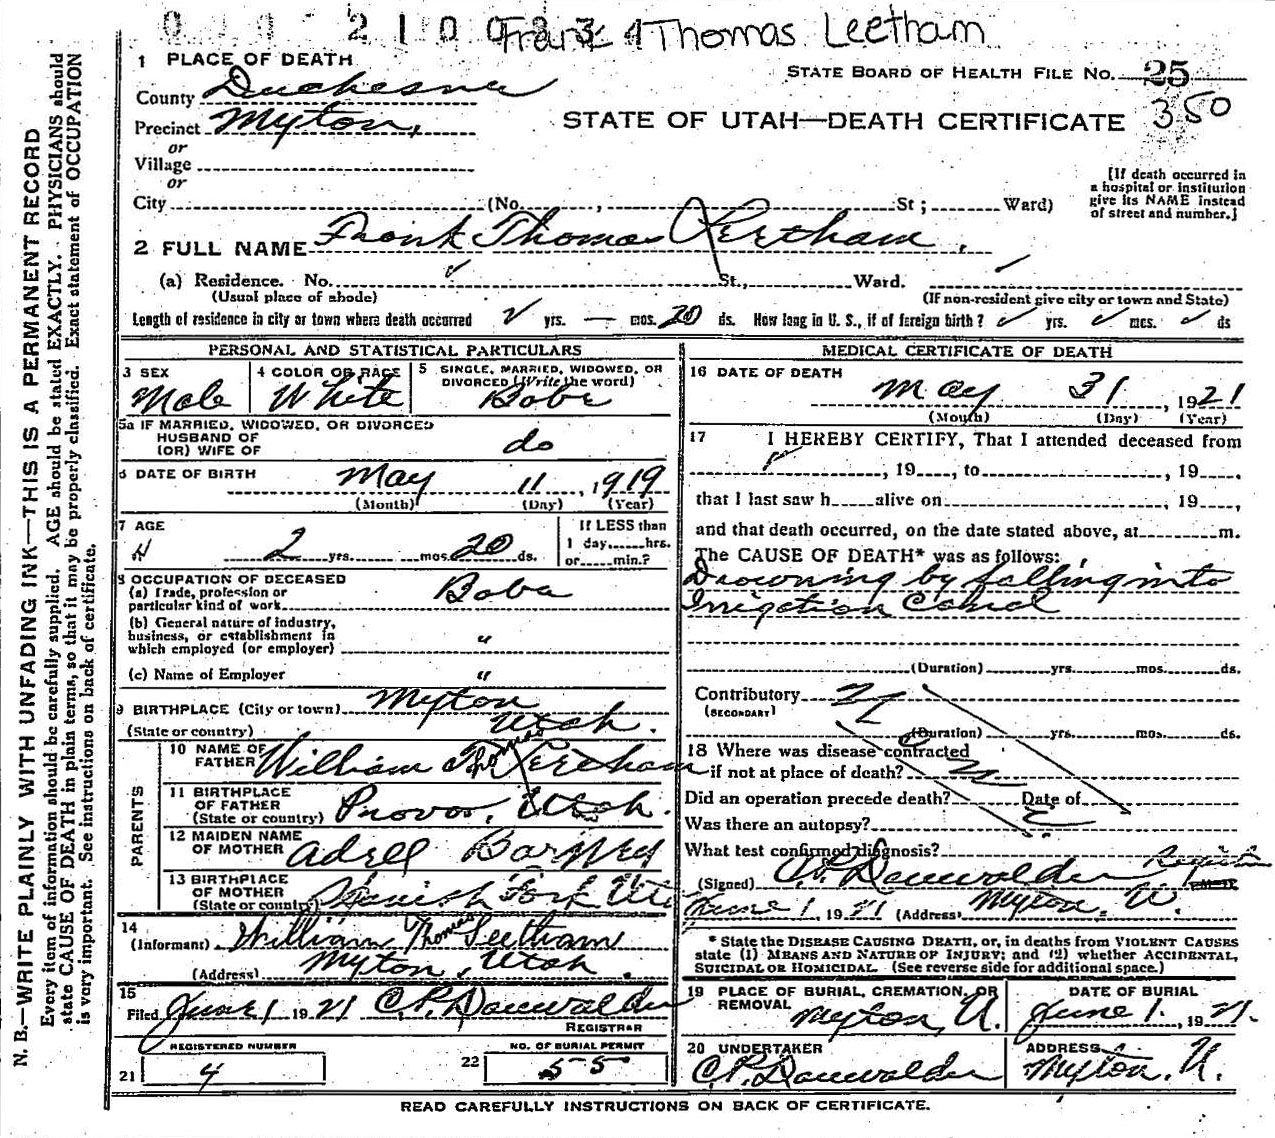 0 2100 3 4
Frank Thomas Leetham
1 PLACE OF DEATH
STATE BOARD OF HEALTH FILE NO. 25
County Duchesne
350
Precinct Myton,
STATE OF UTAH—DEATH CERTIFICATE
or
Village
or
City (No. , St ; Ward)
[If death occurred in
a hospital or institution
give its NAME instead
of street and number.]
2 FULL NAME Frank Thomas Leetham.
(a) Residence. No. St., Ward.
(Usual place of abode) (If non-resident give city or town and State)
Length of residence in city or town where death occurred 2 yrs. — mos. 20 ds. How long in U. S., if of foreign birth? ✓ yrs. ✓ mos. ✓ ds
PERSONAL AND STATISTICAL PARTICULARS
3 SEX Male
4 COLOR OR RACE White
5 SINGLE, MARRIED, WIDOWED, OR
DIVORCED (Write the word)
Babe
5a IF MARRIED, WIDOWED, OR DIVORCED
HUSBAND OF
(OR) WIFE OF do
6 DATE OF BIRTH May 11, 1919
(Month) (Day) (Year)
7 AGE
2 yrs. mos. 20 ds.
If LESS than
1 day, hrs.
or min.?
8 OCCUPATION OF DECEASED
(a) Trade, profession or
particular kind of work Babe
(b) General nature of industry,
business, or establishment in
which employed (or employer) "
(c) Name of Employer "
9 BIRTHPLACE (City or town) Myton
(State or country) Utah.
PARENTS
10 NAME OF
FATHER William Thomas Leetham
11 BIRTHPLACE
OF FATHER
(State or country) Provo, Utah.
12 MAIDEN NAME
OF MOTHER Adell Barney
13 BIRTHPLACE
OF MOTHER
(State or country) Spanish Fork Uta
14
(Informant) William Thomas Leetham
(Address) Myton, Utah.
15
Filed June 1 1921 C.P. Dauwalder
REGISTRAR
REGISTERED NUMBER
21 4
NO. OF BURIAL PERMIT
22 55
MEDICAL CERTIFICATE OF DEATH
16 DATE OF DEATH
May 31, 1921
(Month) (Day) (Year)
17 I HEREBY CERTIFY, That I attended deceased from
, 19 , to , 19 ,
that I last saw h alive on , 19 ,
and that death occurred, on the date stated above, at m.
The CAUSE OF DEATH* was as follows:
Drowning by falling into
Irrigation Canal
(Duration) yrs. mos. ds.
Contributory
(SECONDARY)
(Duration) yrs. mos. ds.
18 Where was disease contracted
if not at place of death?
Did an operation precede death? Date of
Was there an autopsy?
What test confirmed diagnosis?
(Signed) C.P. Dauwalder Registrar
June 1, 1921 (Address) Myton, U.
* State the DISEASE CAUSING DEATH, or, in deaths from VIOLENT CAUSES
state (1) MEANS AND NATURE OF INJURY; and (2) whether ACCIDENTAL,
SUICIDAL OR HOMICIDAL. (See reverse side for additional space.)
19 PLACE OF BURIAL, CREMATION, OR
REMOVAL Myton, U.
DATE OF BURIAL
June 1, 1921.
20 UNDERTAKER
C.P. Dauwalder
ADDRESS
Myton, U.
READ CAREFULLY INSTRUCTIONS ON BACK OF CERTIFICATE.
N. B.—WRITE PLAINLY WITH UNFADING INK—THIS IS A PERMANENT RECORD
Every item of information should be carefully supplied. AGE should be stated EXACTLY. PHYSICIANS should
state CAUSE OF DEATH in plain terms, so that it may be properly classified. Exact statement of OCCUPATION
is very important. See instructions on back of certificate.